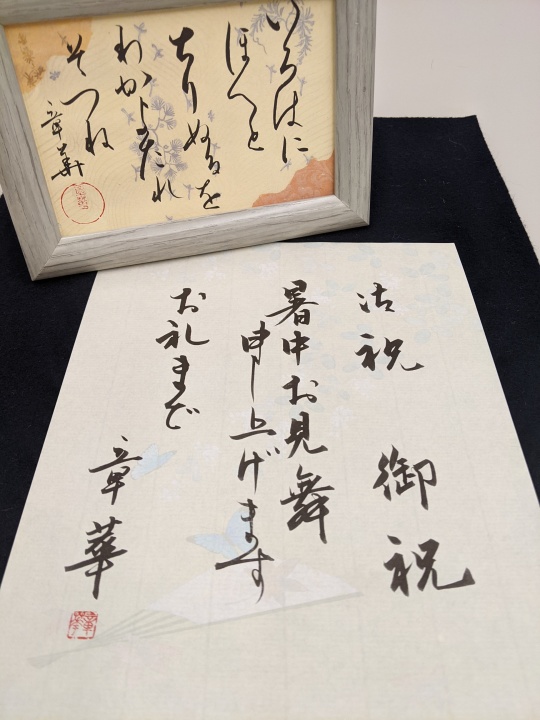 いろはに
ほへと
ちりぬるを
わかよたれ
そつね
章華
御祝　御祝
暑中お見舞
申し上げます
お礼まで
章華